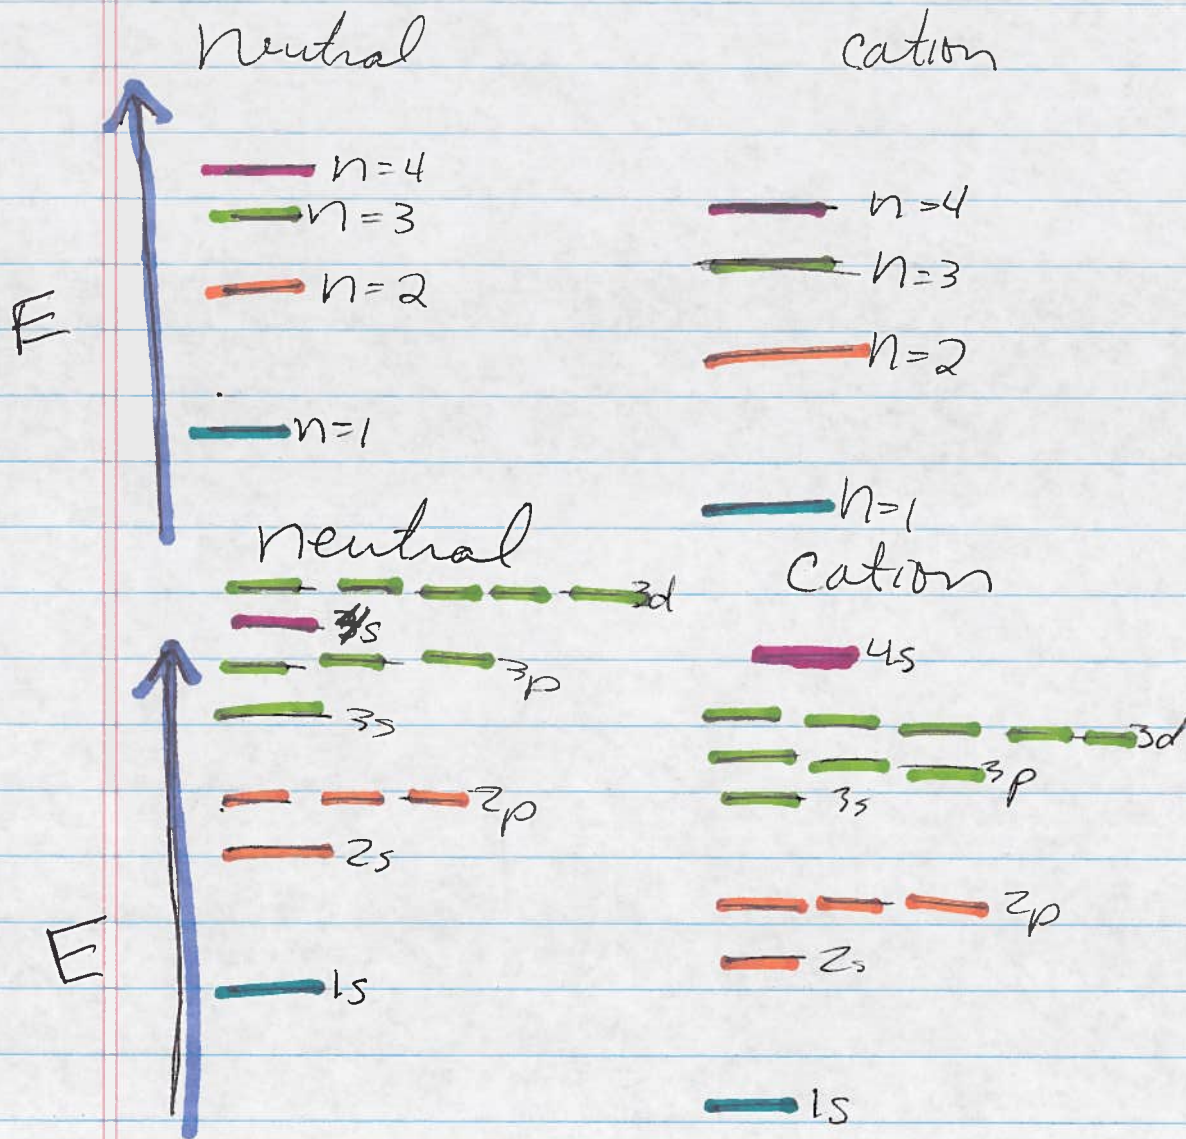 Neutral
cation
n=4
n=3
n=2
n=1
E
n=4
n=3
n=2
n=1
neutral
3d
4s
3p
3s
2p
2s
1s
E
Cation
4s
3d
3p
3s
2p
2s
1s